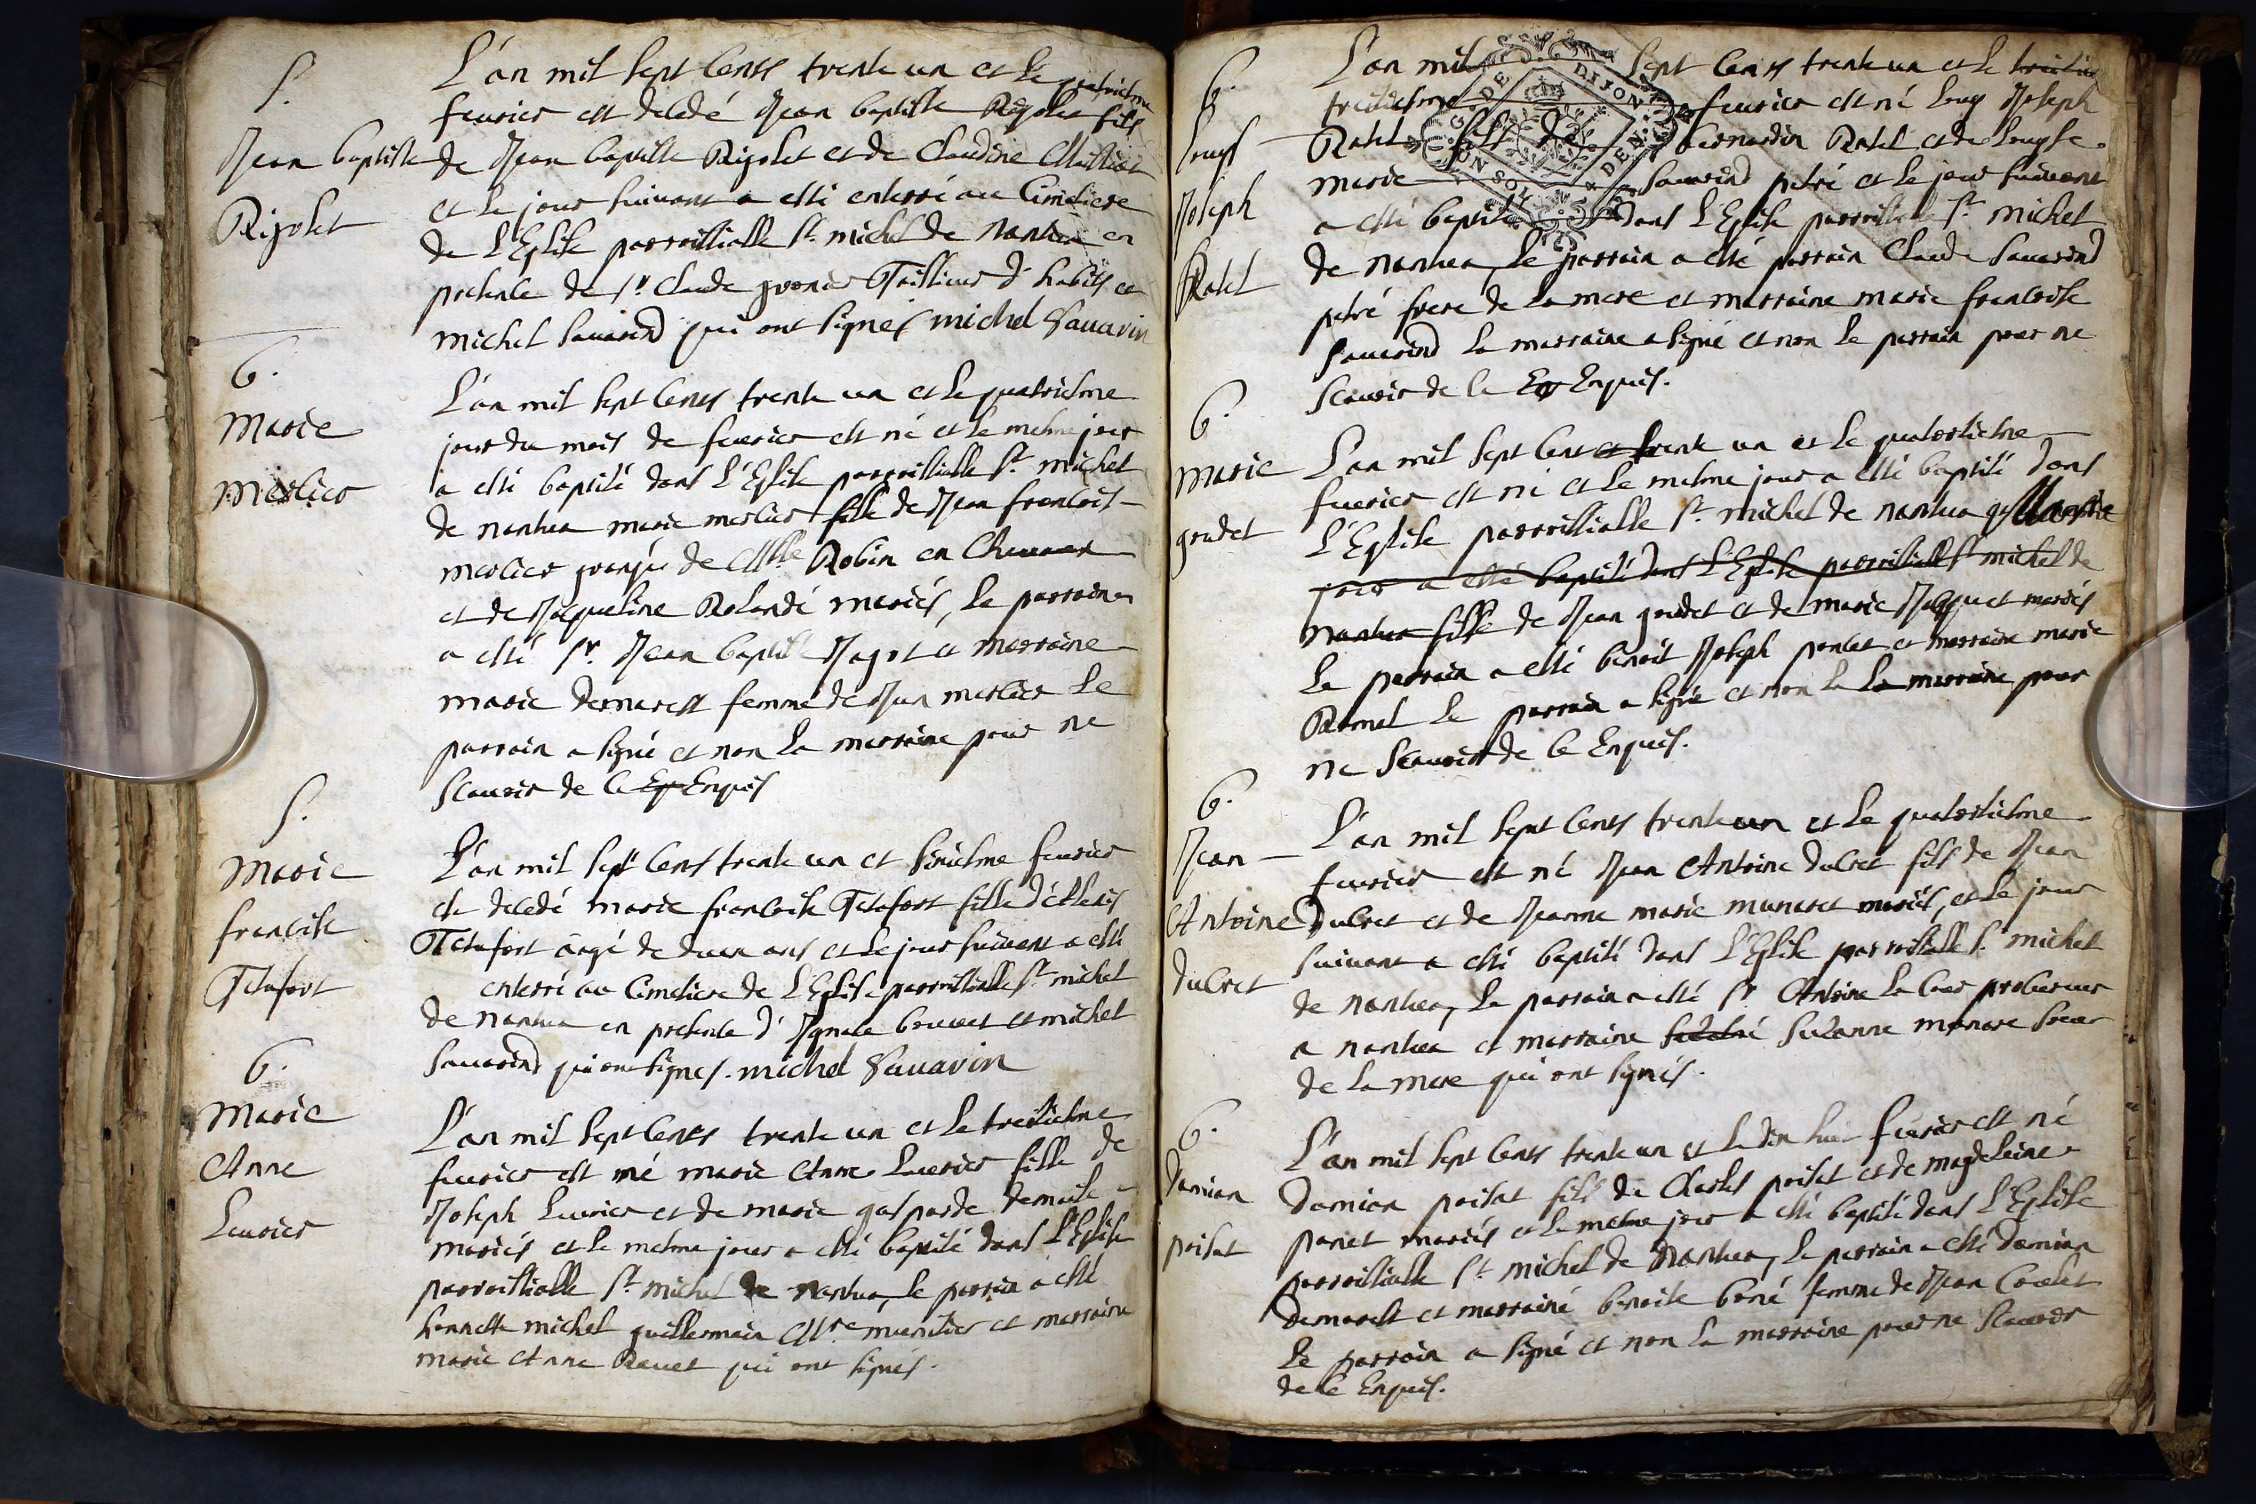 S.
Jean baptiste
Rigolet
L'an mil sept Cents trente un et le quatriesme
feurier est decedé Jean baptiste Rigolet fils
de Jean baptiste Rigolet et de Claudine
et le jour suiuant a esté enterré au Cimetiere
de L'Eglise parroissialle St. michel de nantua en
presence de sr. Claude Tailleur d'habits et
michel Sauarind qui ont signés michel Sauarin
b.
Marie
Merlier
L'an mil sept Cents trente un et le quatriesme
jour du mois de feurier est né et le mesme jour
a esté baptisé dans L'Eglise parroissialle St. michel
de nantua marie merlier fille de Jean francois
merlier de Robin en
et de Jacqueline Rolandé mariés, le parrain
a esté sr. Jean baptiste Jagot et marraine
marie demarest femme de Jean merlier Le
parrain a signé et non La marraine pour ne
scauoir de ce Enquis
S.
Marie
francoise
Tetafort
L'an mil sept Cents trente un et feurier
est decedé marie francoise Tetafort fille
Tetafort aagé de deux ans et le jour suiuant a esté
enterré au Cimetiere de L'Eglise parroissialle St. michel
de Nantua en presence d'Ignace et michel
Sauarind qui ont signes. michel Sauarin
b.
Marie
Anne
Leurier
L'an mil sept Cents trente un et le treiziesme
feurier est né marie Anne Leurier fille de
Joseph Leurier et de marie gasparde
mariés et le mesme jour a esté baptisé dans L'Eglise
parroissialle St. michel de nantua, le parrain a esté
honneste michel guillermain et marraine
marie Anne Rauet qui ont signés.
b.
Louys
Joseph
Ratel
L'an mil sept Cents trente un et le
treiziesme feurier est né Louys Joseph
Ratel fils de bernardin Ratel et de Louyse
marie Sauarind petré et le jour suiuant
a esté baptisé dans L'Eglise parroissialle St. michel
de nantua, Le parrain a esté parrain Claude Sauarind
petré frere de La mere et marraine marie francoise
Sauarind La marraine a signé et non Le parrain pour ne
scauoir de ce Enquis.
b.
Marie
gudet
L'an mil sept Cent et trente un et le quatorziesme
feurier est né et le mesme jour a esté baptisé dans
L'Eglise parroissialle St. michel de nantua Marie
jour a esté baptisé dans L'Eglise parroissialle St michel de
Nantua fille de Jean gudet et de marie Jacquet mariés
Le parrain a esté benoit Joseph poncet et marraine marie
Ramel Le parrain a signé et non la La marraine pour
ne scauoir de Ce Enquis.
b.
Jean
Antoine
Ducret
L'an mil sept Cents trente un et Le quatorziesme
feurier est né Jean Antoine Ducret fils de Jean
Ducret et de Jeanne marie mariés, et le jour
suiuant a esté baptisé dans L'Eglise parroissialle St. michel
de nantua, Le parrain a esté sr Antoine procureur
a nantua et marraine Suzanne soeur
de La mere qui ont signés.
b.
damian
poisat
L'an mil sept Cents trente un et le dix huit feurier est né
Damian poisat fils de Charles poisat et de magdeleine
mariés et Le mesme jour a esté baptisé dans L'Eglise
parroissialle St. michel de Nantua, Le parrain a esté damian
demarest et marraine benoite boné femme de Jean
Le parrain a signé et non La marraine pour ne scauoir
de ce Enquis.
G. DE DIJON